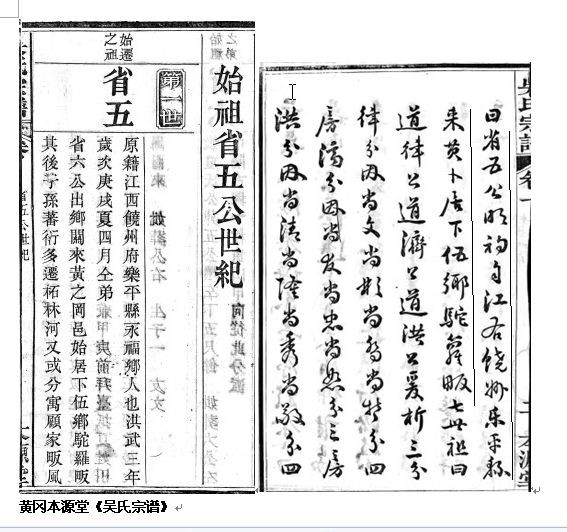 吳氏宗譜 卷一
曰省五公明初自江右饒州樂平縣
來黃卜居下伍鄉駝蘿畈七世祖曰
道律公道濟公道洪公爰析三分
律分尚文尚彬尚尚特分四
房濟分尚友尚忠尚分三房
洪分尚清尚隆尚秀尚敬分四
始祖省五公世紀
第一世
始遷之祖
省五
原籍江西饒州府樂平縣永福鄉人也洪武三年
歲次庚戌夏四月仝弟
省六公出鄉關來黃之岡邑始居下伍鄉駝羅畈
其後子孫蕃衍多遷柘林河又或分寓顧家畈風
省五公世紀
黄冈本源堂《吴氏宗谱》